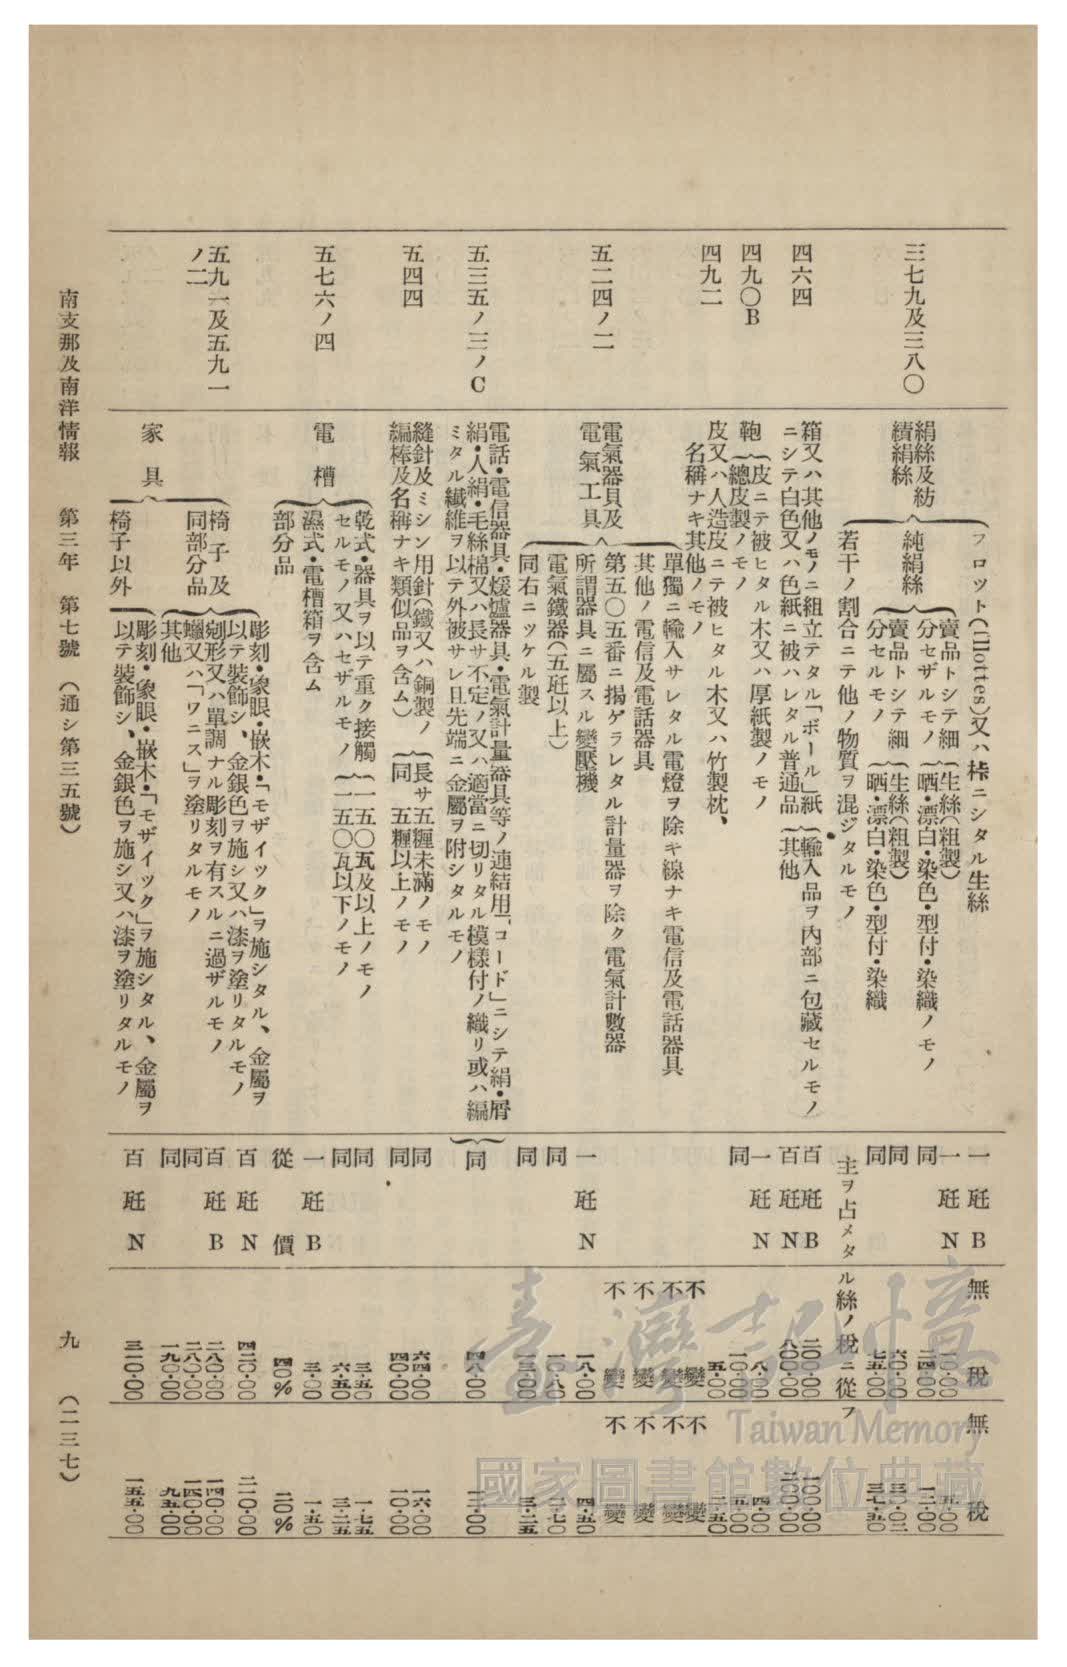 三七九及三八〇
四六四
四九〇B
四九二
五二四ノ二
五三五ノ三ノC
五四四
五七六ノ四
五九一及五九一
ノ二
フロツト(flottes)又ハ桛ニシタル生絲
絹絲及紡
績絹絲
純絹絲
賣品トシテ細
分セザルモノ
生絲(粗製)
晒・漂白・染色・型付・染織ノモノ
賣品トシテ細
分セルモノ
生絲(粗製)
晒・漂白・染色・型付・染織
若干ノ割合ニテ他ノ物質ヲ混ジタルモノ
箱又ハ其他ノモノニ組立テタル「ボール」紙
ニシテ白色又ハ色紙ニ被ハレタル普通品
輸入品ヲ内部ニ包藏セルモノ
其他
鞄
皮ニテ被ヒタル木又ハ厚紙製ノモノ
總皮製ノモノ
皮又ハ人造皮ニテ被ヒタル木又ハ竹製枕、
名稱ナキ其他ノモノ
電氣器具及
電氣工具
單獨ニ輸入サレタル電燈ヲ除キ線ナキ電信及電話器具
其他ノ電信及電話器具
第五〇五番ニ揭ゲラレタル計量器ヲ除ク電氣計數器
所謂器具ニ屬スル變壓機
電氣鐵器(五瓩以上)
同右ニツケル製
電話・電信器具・煖爐器具・電氣計量器具等ノ連結用「コード」ニシテ絹・屑
絹・人絹・毛絲棉又ハ長サ不定ノ又ハ適當ニ切リタル模樣付ノ織リ或ハ編
ミタル纖維ヲ以テ外被サレ且先端ニ金屬ヲ附シタルモノ
縫針及ミシン用針(鐵又ハ鋼製ノ
編棒及名稱ナキ類似品ヲ含ム)
長サ五糎未滿ノモノ
同 五糎以上ノモノ
電槽
乾式・器具ヲ以テ重ク接觸
セルモノ又ハセザルモノ
一五〇瓦及以上ノモノ
一五〇瓦以下ノモノ
濕式・電槽箱ヲ含ム
部分品
家具
椅子及
同部分品
彫刻・象眼・嵌木・「モザイツク」ヲ施シタル、金屬ヲ
以テ裝飾シ、金銀色ヲ施シ又ハ漆ヲ塗リタルモノ
剜形又ハ單調ナル彫刻ヲ有スルニ過ザルモノ
蠟又ハ「ワニス」ヲ塗リタルモノ
其他
椅子以外
彫刻・象眼・嵌木・「モザイツク」ヲ施シタル、金屬ヲ
以テ裝飾シ、金銀色ヲ施シ又ハ漆ヲ塗リタルモノ
一瓩B
一瓩N
同
同
同
主ヲ占メタル絲ノ稅ニ從フ
百瓩B
百瓩N
一瓩N
同
一瓩N
同
同
同
同
同
同
同
一瓩B
從價
百瓩N
百瓩B
同
同
百瓩N
無稅
二四・〇〇
六〇・〇〇
七五・〇〇
二〇〇・〇〇
八〇〇・〇〇
八・〇〇
一〇・〇〇
五・〇〇
不變
不變
不變
不變
一八・〇〇
一〇・八〇
一三・〇〇
四八・〇〇
六四・〇〇
四〇・〇〇
三・五〇
六・五〇
三・〇〇
四〇%
四二〇・〇〇
二八〇・〇〇
二八〇・〇〇
一九〇・〇〇
三一〇・〇〇
無稅
一二・〇〇
三七・五〇
一〇〇・〇〇
二〇〇・〇〇
四・〇〇
五・〇〇
二・五〇
不變
不變
不變
不變
四・五〇
二・七〇
三・二五
一二・〇〇
一六・〇〇
一〇・〇〇
一・七五
三・二五
一・五〇
二〇%
二一〇・〇〇
一四〇・〇〇
一四〇・〇〇
九五・〇〇
一五五・〇〇
南支那及南洋情報 第三年 第七號 (通シ第三五號) 九 (二三七)
臺灣記憶
Taiwan Memory
國家圖書館數位典藏